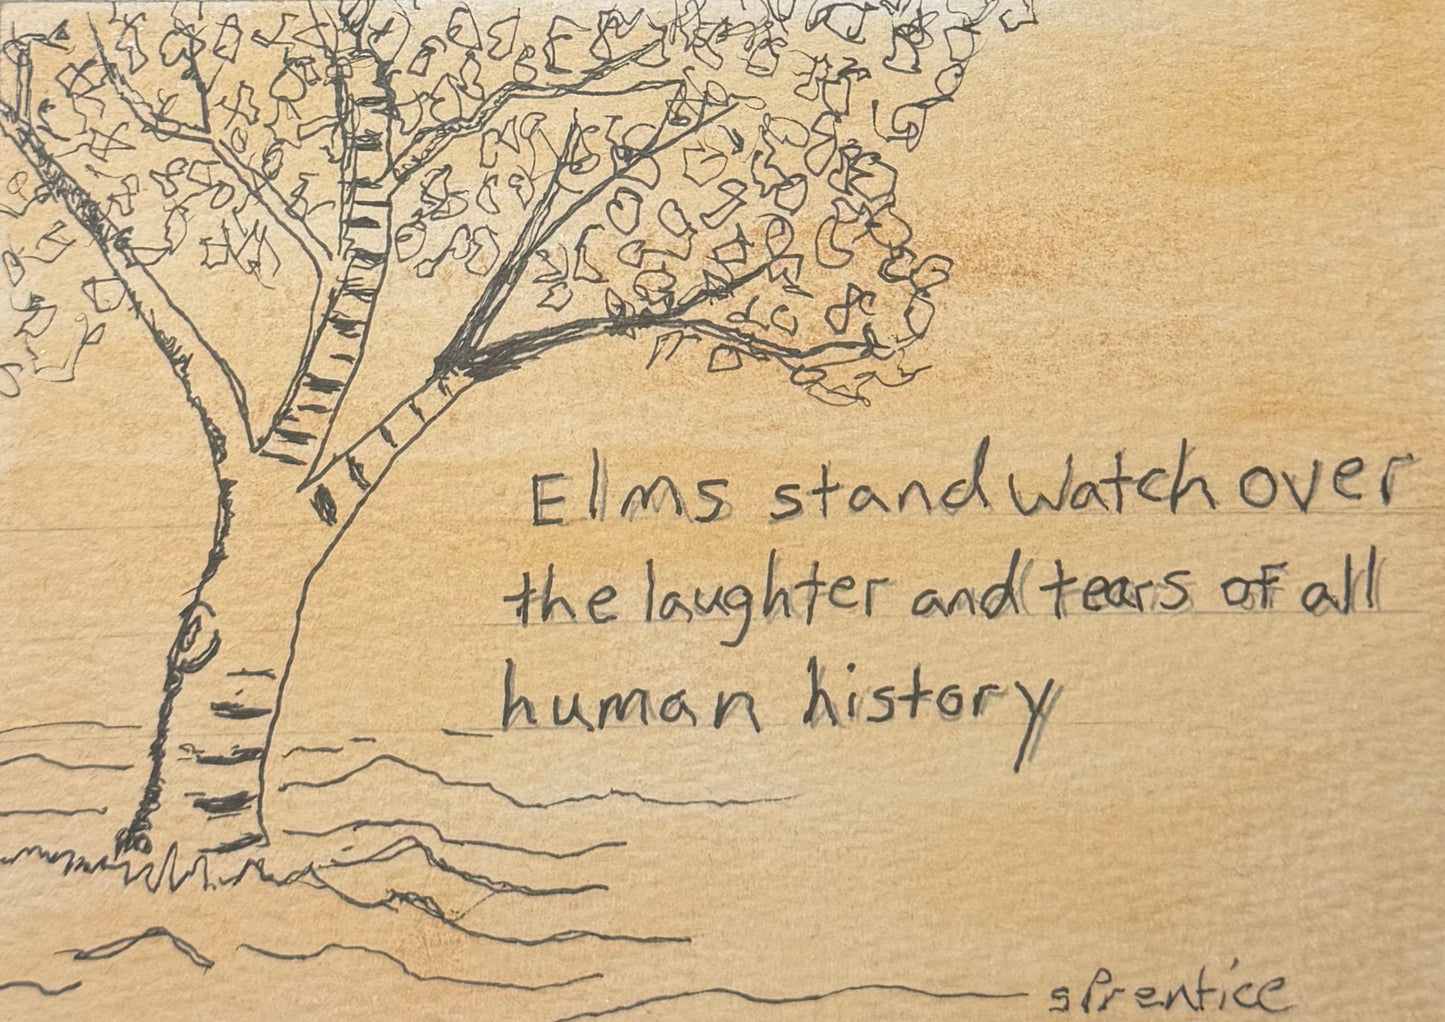 Elms stand watch over
the laughter and tears of all
human history
sPrentice